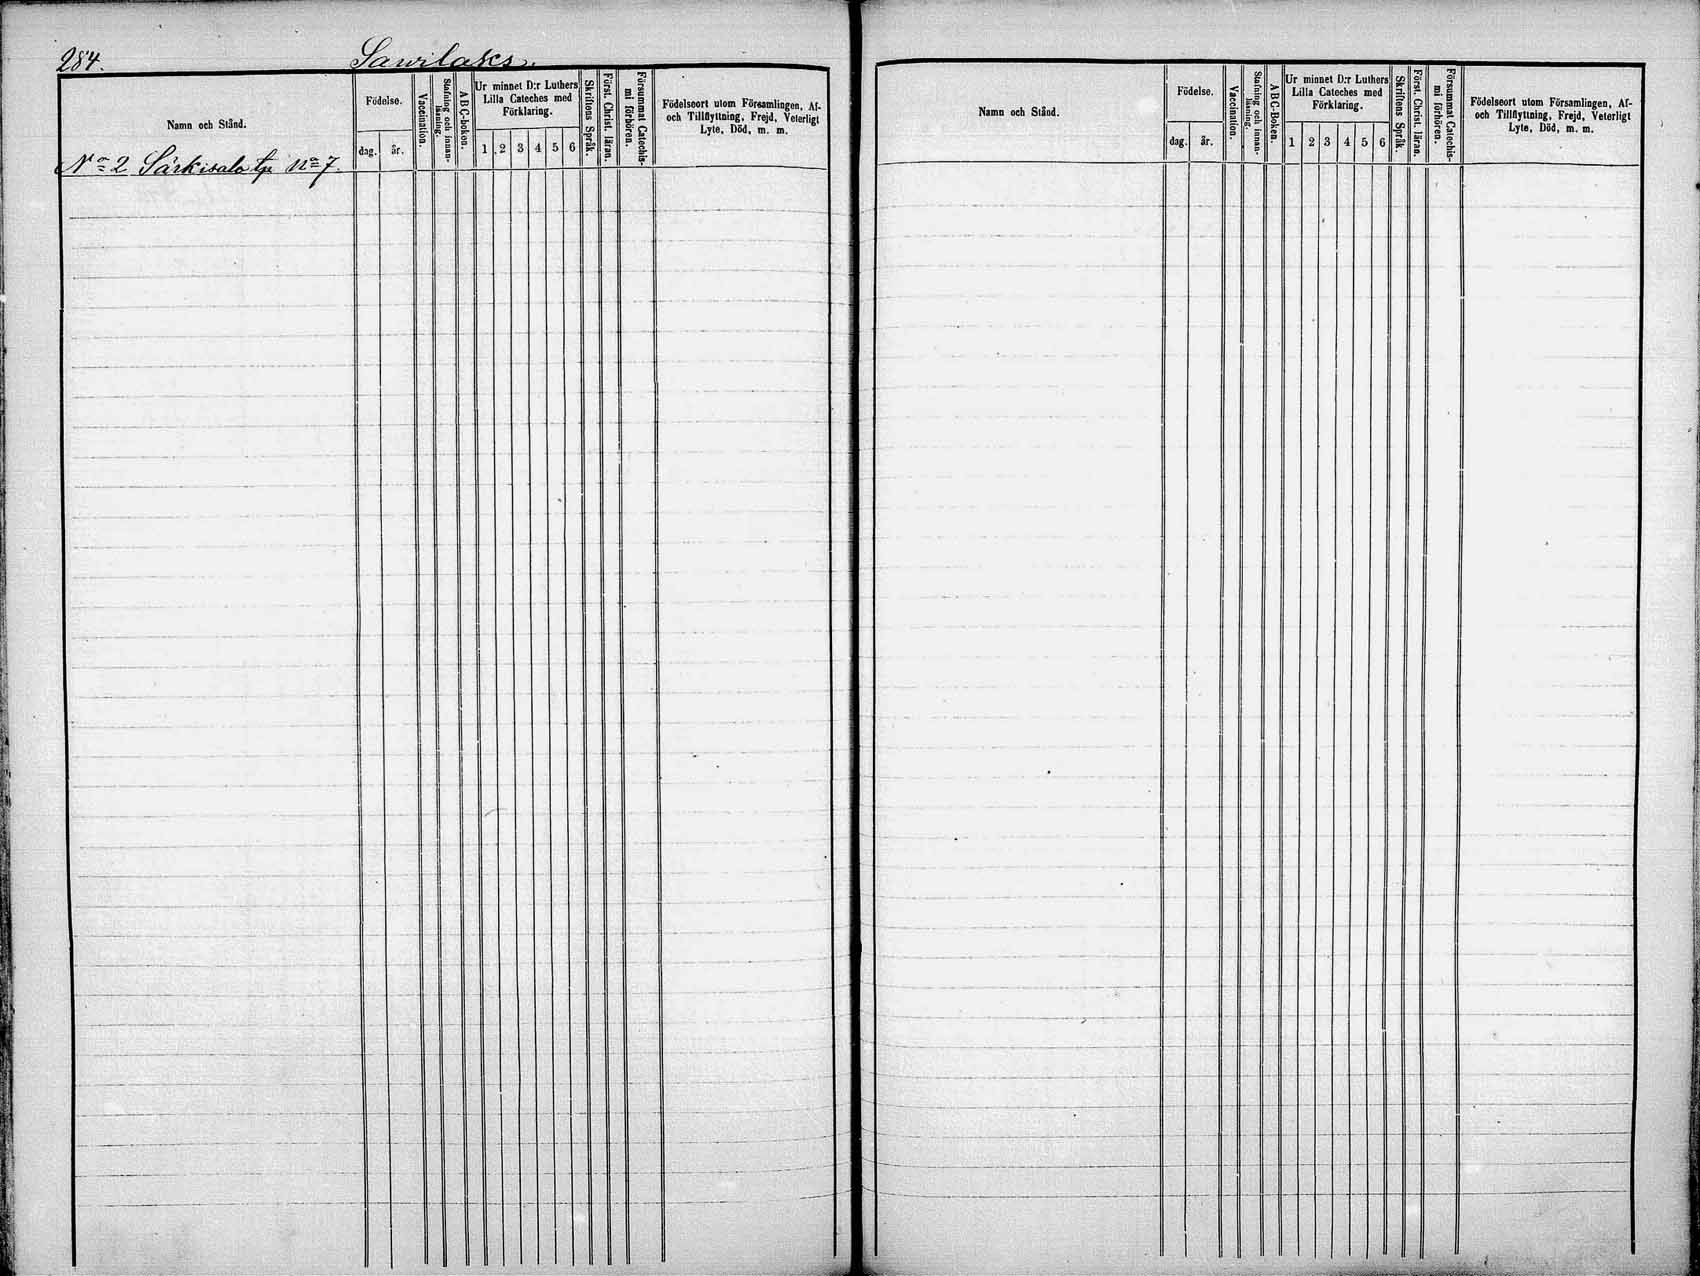 284.
Sawilaks.
Namn och Stånd.
Födelse.
dag.
år.
Vaccination.
Stafning och innan-
läsning.
ABC-boken.
Ur minnet D:r Luthers
Lilla Cateches med
Förklaring.
1 2 3 4 5 6
Skriftens Språk.
Först. Christ. läran.
Försummat Catechis-
mi förhören.
Födelseort utom Församlingen, Af-
och Tillflyttning, Frejd, Veterligt
Lyte, Död, m. m.
No 2 Särkisalo tp No 7.
Namn och Stånd.
Födelse.
dag.
år.
Vaccination.
Stafning och innan-
läsning.
ABC-Boken.
Ur minnet D:r Luthers
Lilla Cateches med
Förklaring.
1 2 3 4 5 6
Skriftens Språk.
Först. Christ. läran.
Försummat Catechis-
mi förhören.
Födelseort utom Församlingen, Af-
och Tillflyttning, Frejd, Veterligt
Lyte, Död, m. m.